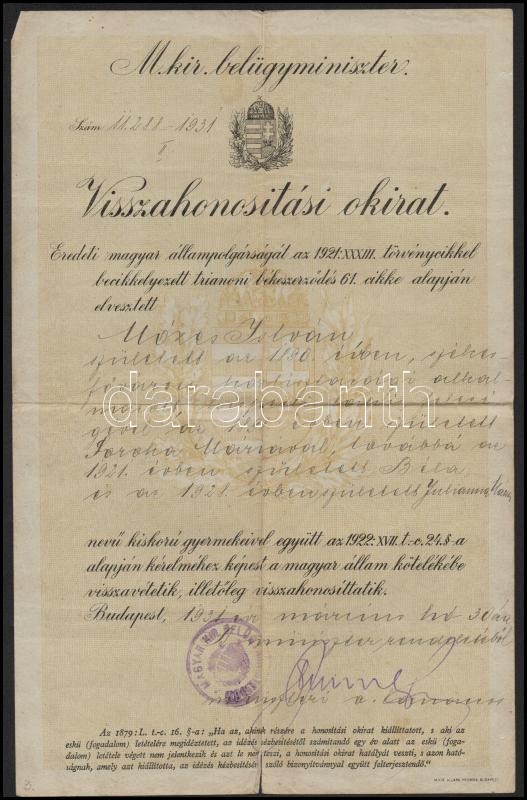 M. kir. belügyminiszter.
Szám 11.288 - 1931
II.
Visszahonositási okirat.
Eredeti magyar állampolgárságát az 1921:XXXIII. törvénycikkel
becikkelyezett trianoni békeszerződés 61. cikke alapján
elvesztett
Mózes István
született az 1890. évben, székes-
fővárosi
és
az évben született
Máriával, továbbá az
1921. évben született Béla
és az 1921. évben született Julianna
nevű kiskorú gyermekeivel együtt az 1922:XVII. t.-c. 24. §-a
alapján kérelméhez képest a magyar állam kötelékébe
visszavétetik, illetőleg visszahonosíttatik.
Budapest, 1931 évi március hó 30 án
A miniszter rendeletéből
miniszteri o. tanácsos
MAGYAR KIR. BELÜGY
darabanth.com
Az 1879:L. t.-c. 16. §-a: „Ha az, akinek részére a honosítási okirat kiállíttatott, s aki az
eskü (fogadalom) letételére megidéztetett, az idézés kézbesítésétől számítandó egy év alatt az eskü (foga-
dalom) letétele végett nem jelentkezik és azt le nem teszi, a honosítási okirat hatályát veszti, s azon ható-
ságnak, amely azt kiállította, az idézés kézbesítéséről szóló bizonyítvánnyal együtt felterjesztendő."
3.